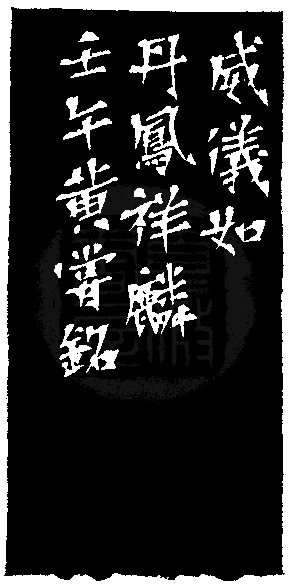 威儀如
丹鳳祥麟
壬午黃嘗銘